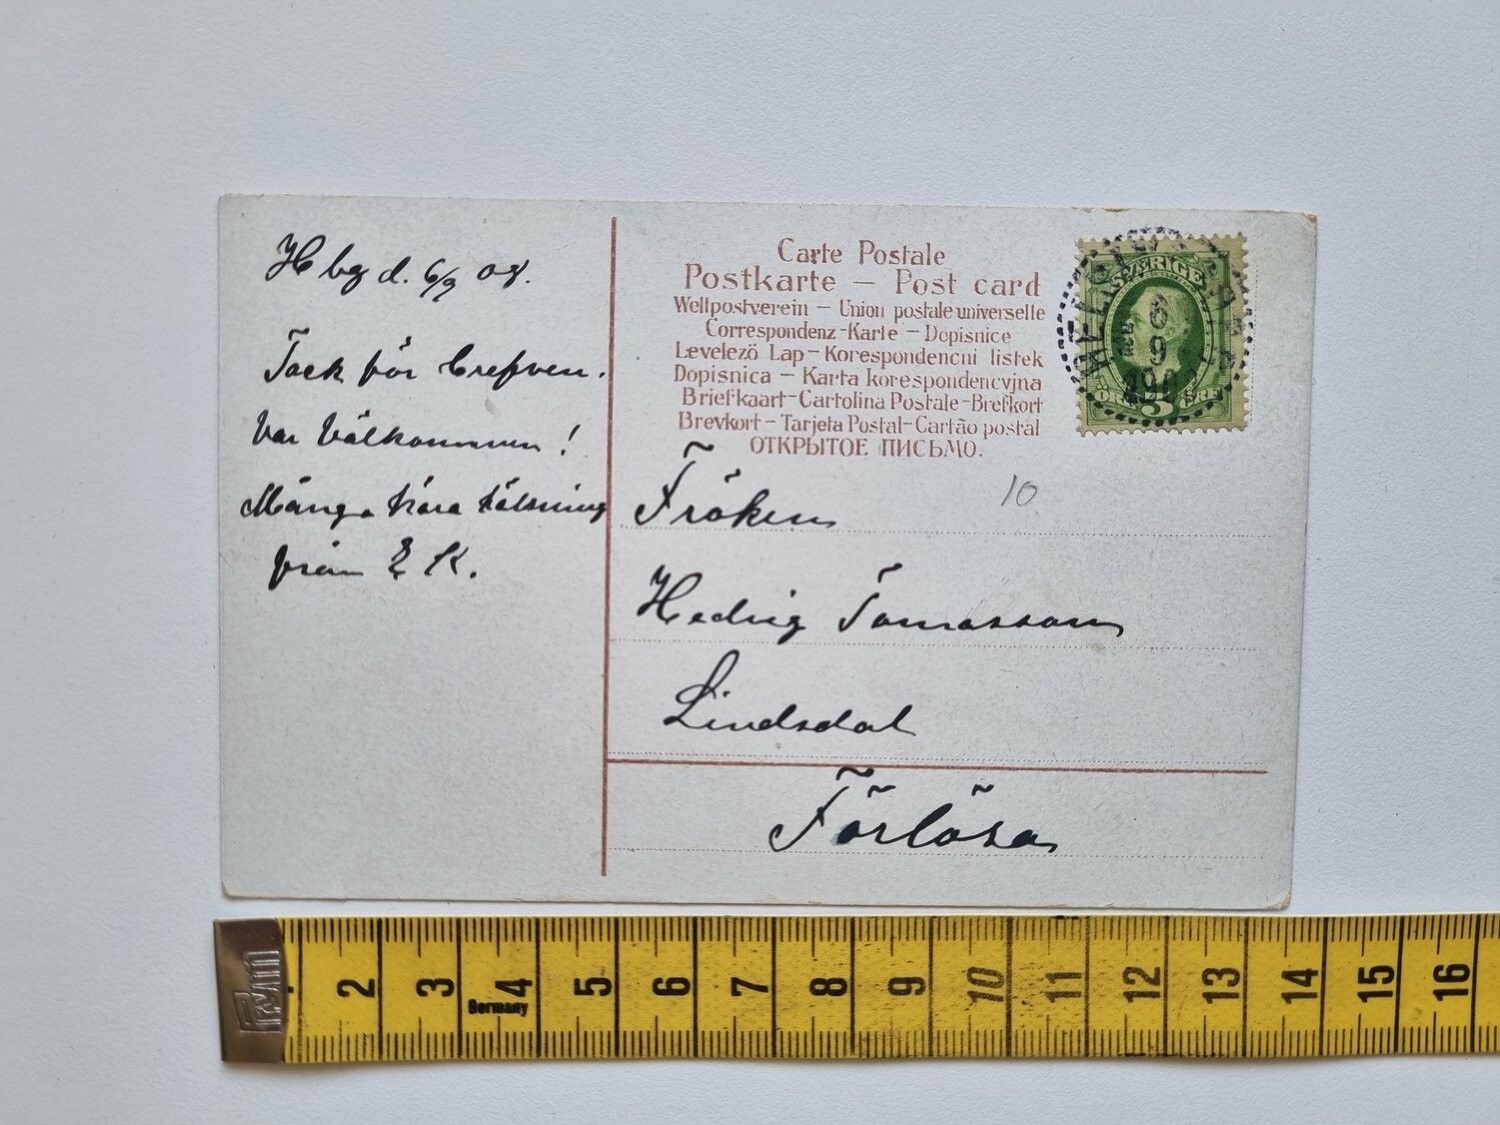 Hbg d. 6/9 08.
Tack för brefven.
Var Välkommen!
Många kära hälsning
från E K.
Carte Postale
Postkarte — Post card
Weltpostverein — Union postale universelle
Correspondenz-Karte — Dopisnice
Levelező Lap — Korespondencni listek
Dopisnica — Karta korespondencyjna
Briefkaart — Cartolina Postale — Brefkort
Brevkort — Tarjeta Postal — Cartão postal
ОТКРЫТОЕ ПИСЬМО.
SVERIGE
6
9
ÖRE 5 ÖRE
10
Fröken
Hedvig Tomasson
Lindsdal
Förlösa
2 3 4 5 6 7 8 9 10 11 12 13 14 15 16
Germany